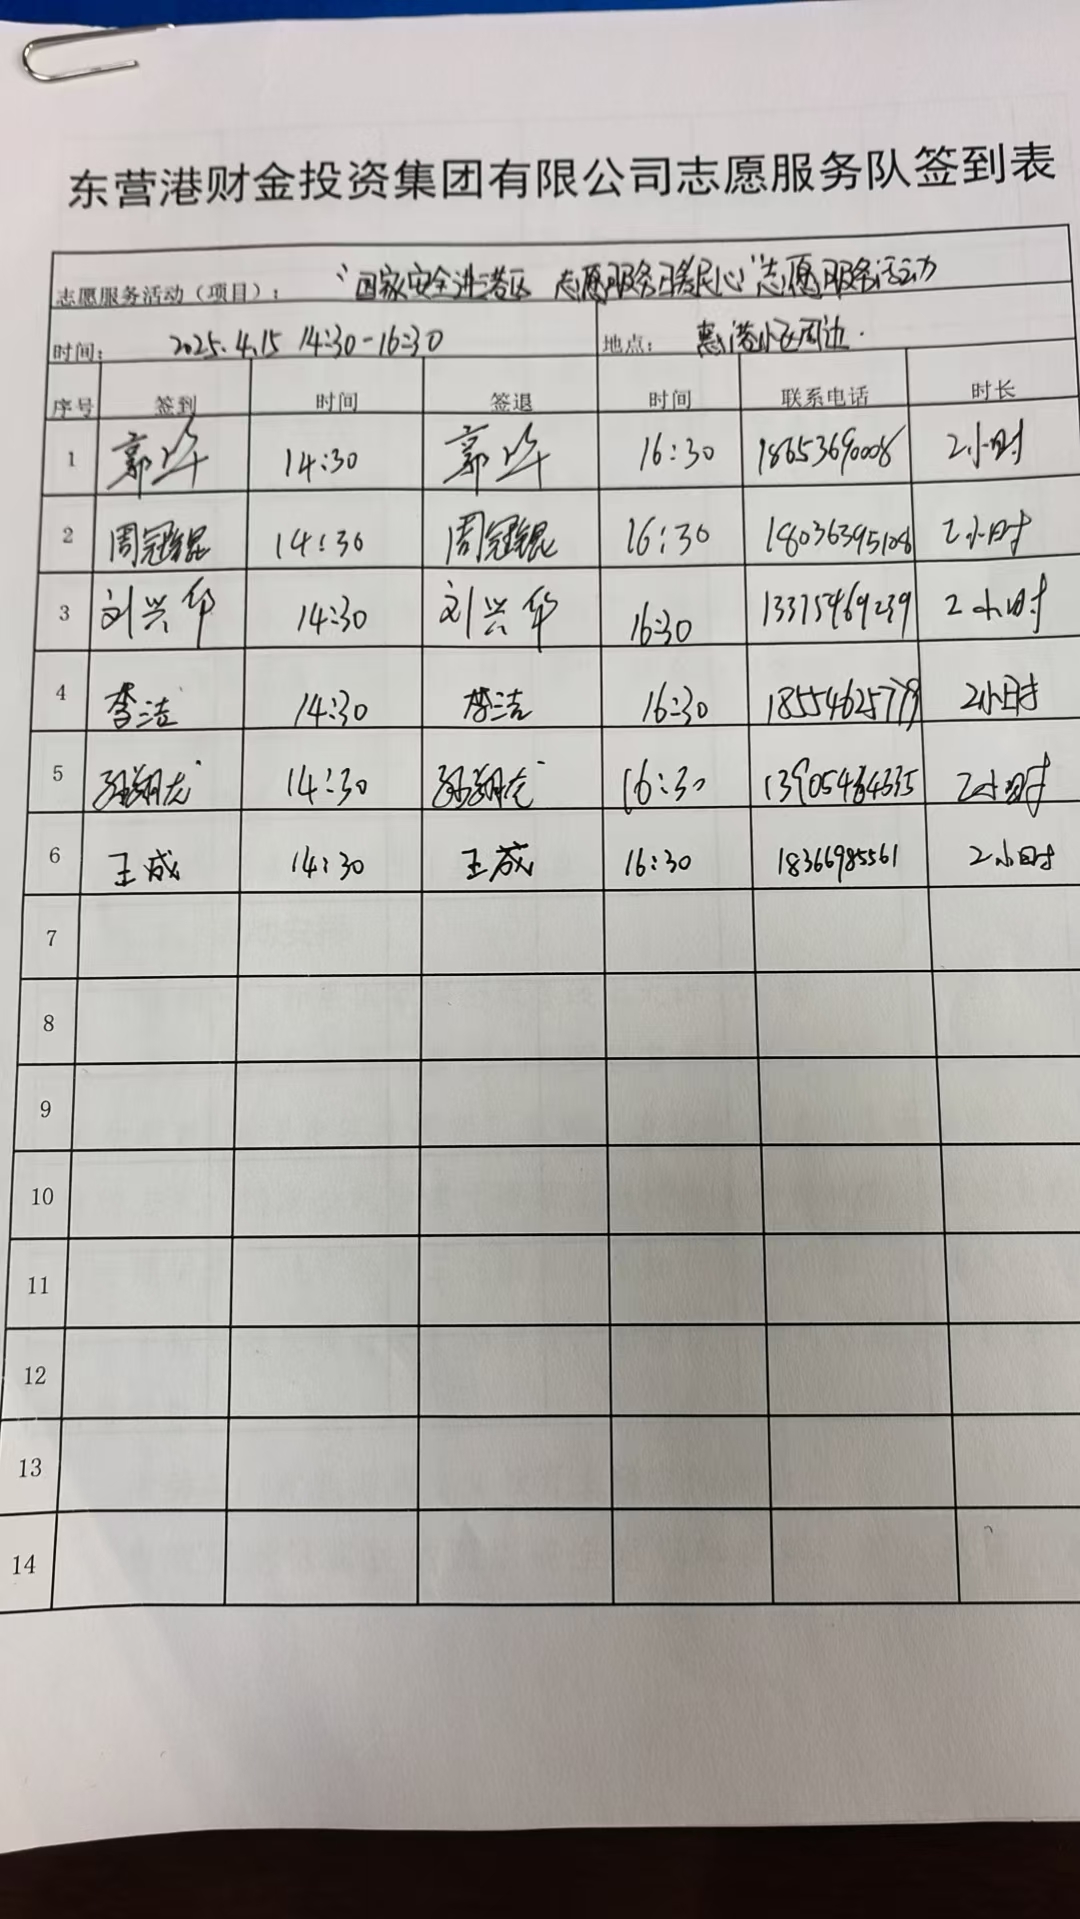 东营港财金投资集团有限公司志愿服务队签到表
志愿服务活动（项目）： “国家安全进港区 志愿服务暖民心”志愿服务活动
时间： 2025.4.15 14:30-16:30 地点： 惠港小区周边.
序号 签到 时间 签退 时间 联系电话 时长
1 郭 14:30 郭 16:30 18653690008 2小时
2 周冠锟 14:30 周冠锟 16:30 18036395108 2小时
3 刘兴华 14:30 刘兴华 16:30 13375469239 2小时
4 李洁 14:30 李洁 16:30 2小时
5 孙翔龙 14:30 孙翔龙 16:30 2小时
6 王成 14:30 王成 16:30 18366985561 2小时
7
8
9
10
11
12
13
14